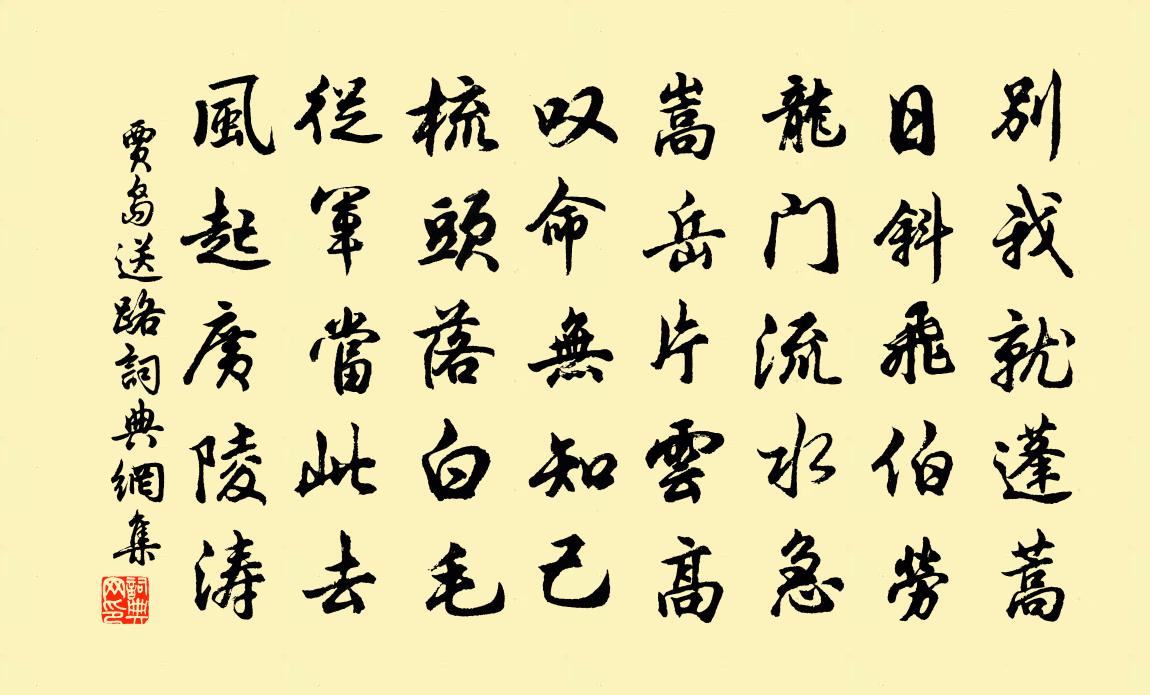 別我就蓬蒿
日斜飛伯勞
龍门流水急
嵩岳片雲高
叹命無知己
梳頭落白毛
從軍當此去
風起廣陵濤
賈島送路詞典網集
詞典网印